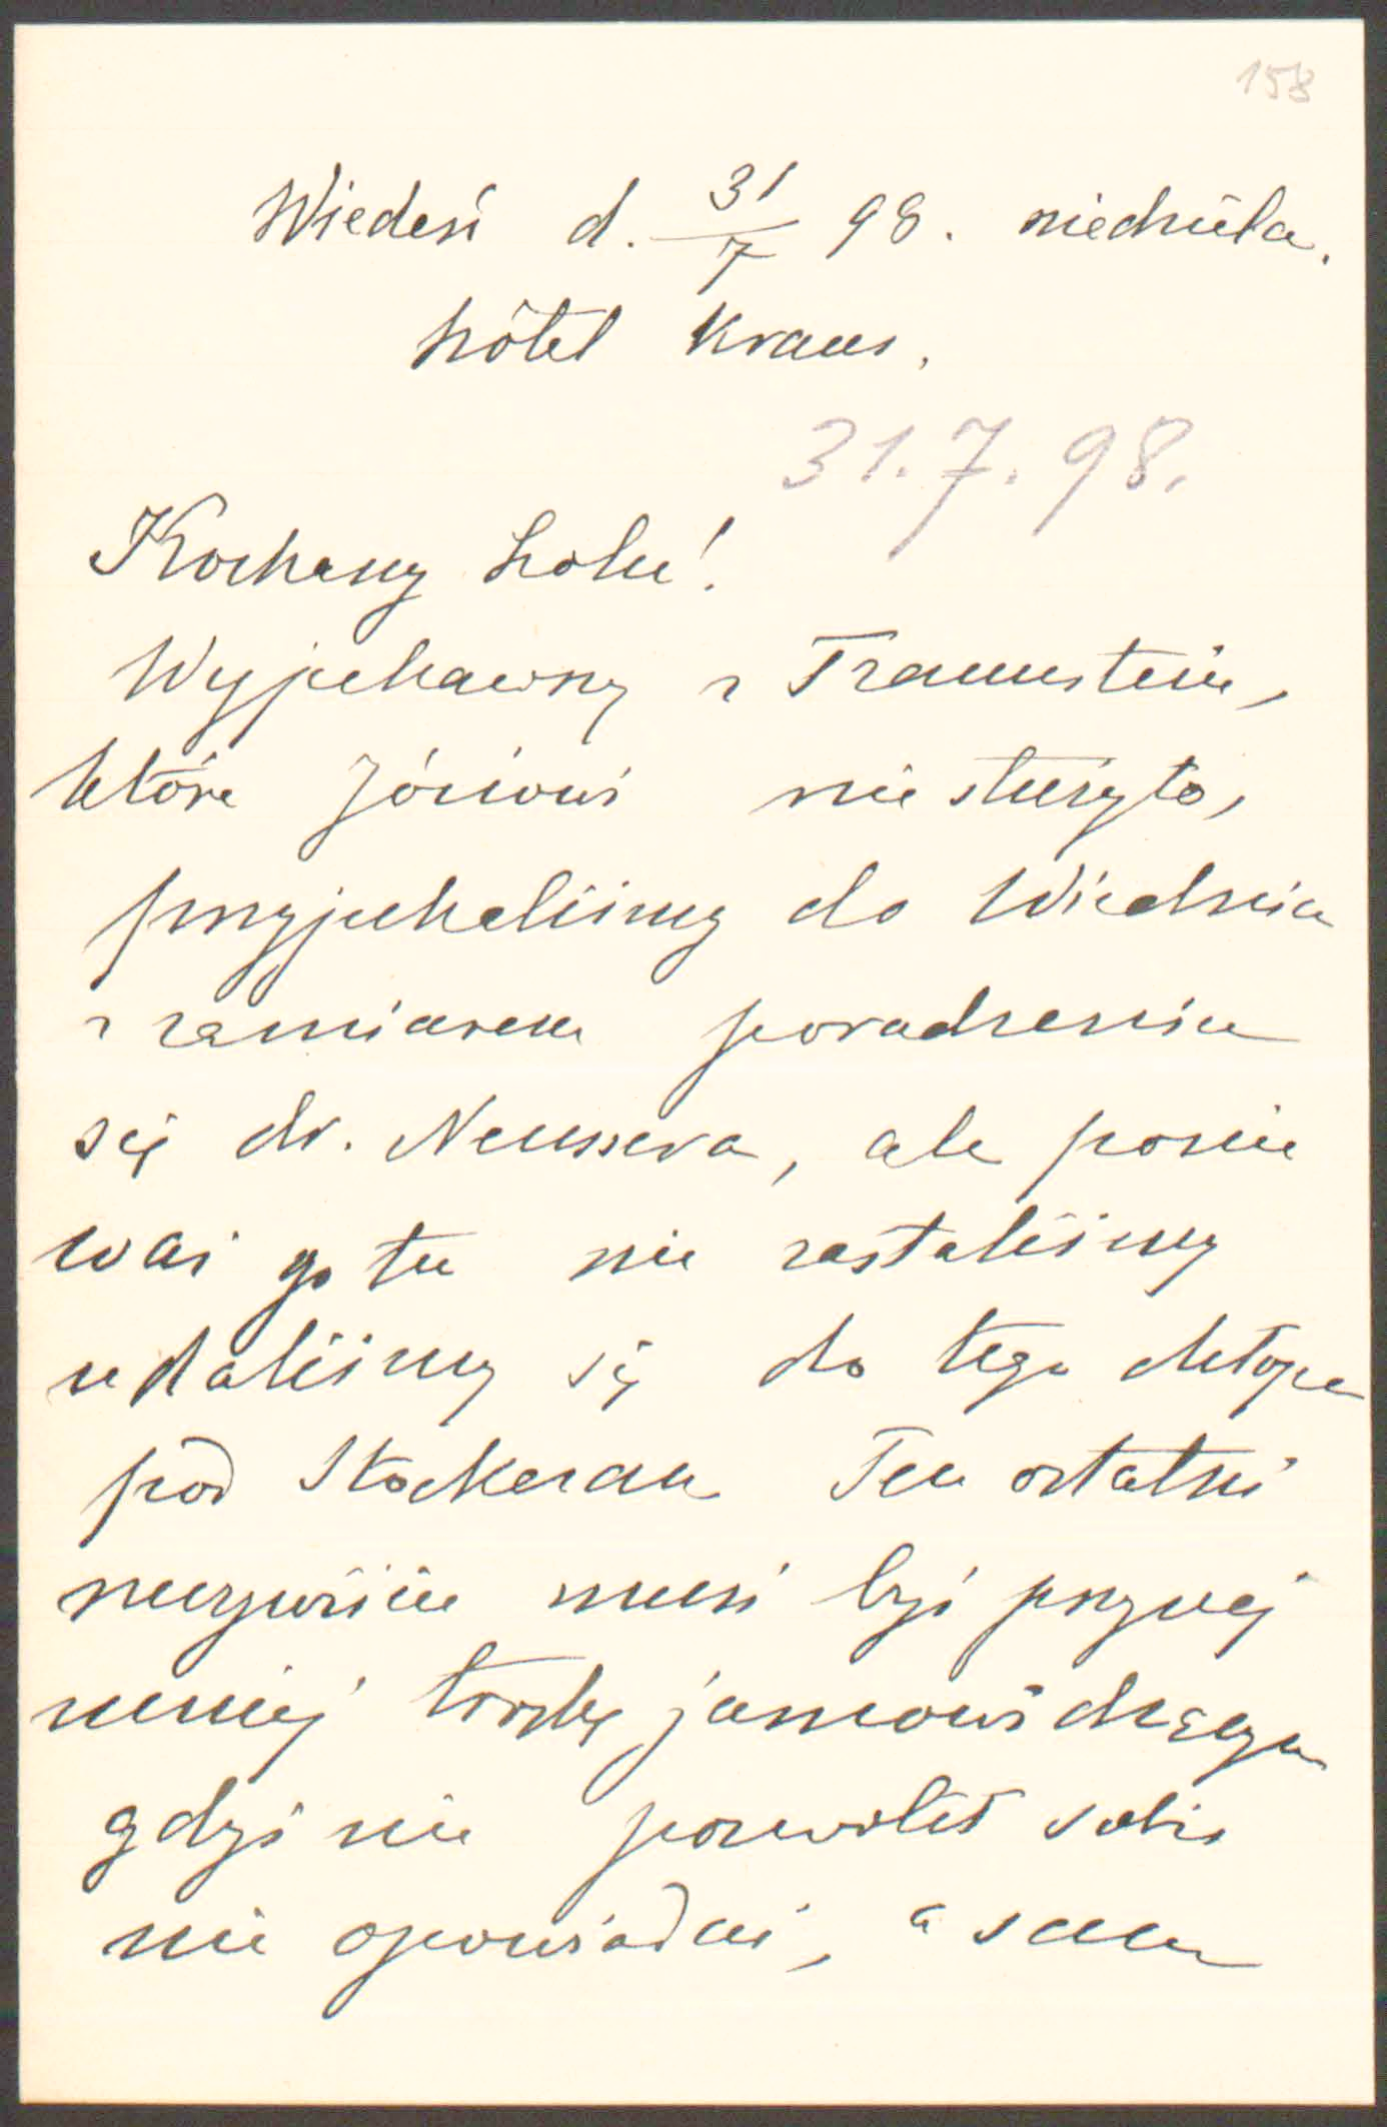 158
Wiedeń d. 31/7 98. niedziela.
hôtel Kraus.
31.7.98.
Kochany Lolu!
Wyjechawszy z Traunstein,
które Józiowi nie służyło,
przyjechaliśmy do Wiednia
z zamiarem poradzenia
się dr. Neussera, ale ponie
waż go tu nie zastaliśmy
udaliśmy się do tego chłopa
pod Stockerau Ten ostatni
rzeczywiście musi być przynaj
mniej trochę jasnowidzącym
gdyż nie pozwolił sobie
nic opowiadać, a sam